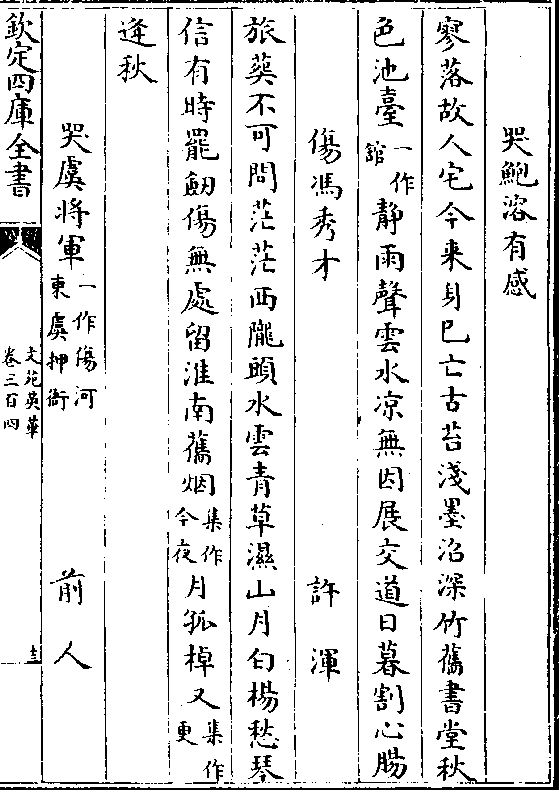 哭鮑溶有感
寥落故人宅今来身已亡古苔淺墨沼深竹舊書堂秋
色池臺一作館静雨聲雲水凉無因展交道日暮割心腸
傷馮秀才 許渾
旅葬不可問茫茫西隴頭水雲青草濕山月白楊愁琴
信有時罷劒傷無處留淮南舊烟集作今夜月孤棹又集作更
逢秋
哭虞將軍一作傷河東虞押衙 前人
欽定四庫全書 文苑英華 卷三百四